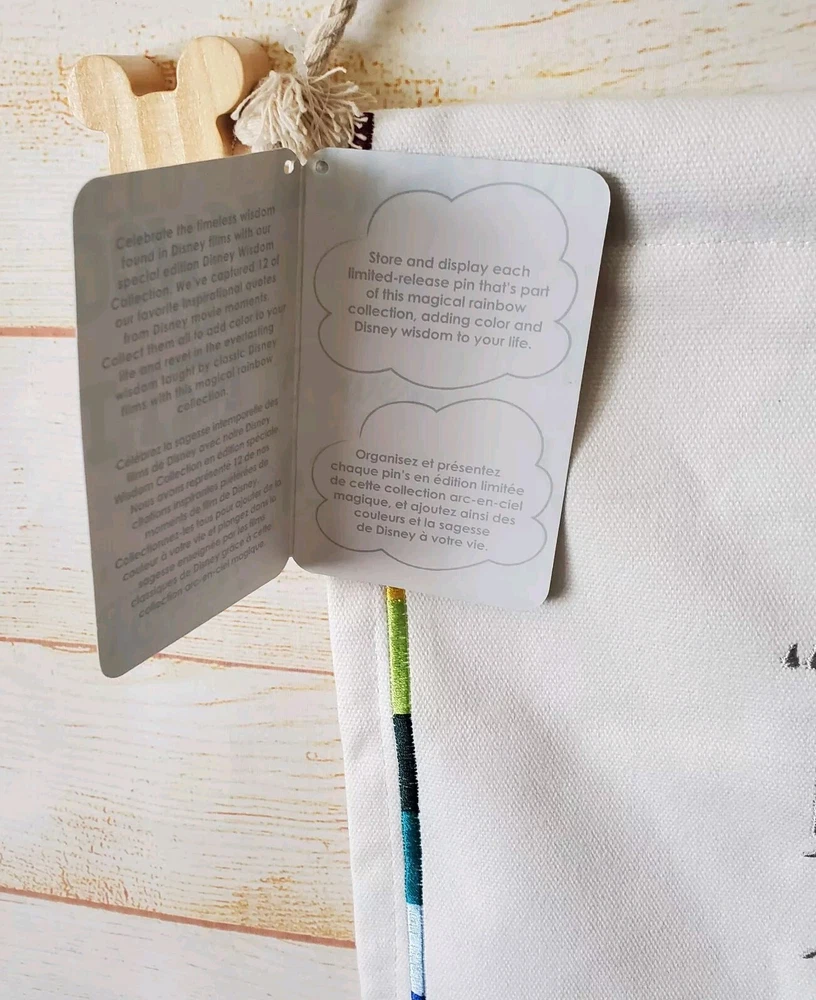 Celebrate the timeless wisdom
found in Disney films with our
special edition Disney Wisdom
Collection. We've captured 12 of
our favorite inspirational quotes
from Disney movie moments.
Collect them all to add color to your
life and revel in the everlasting
wisdom taught by classic Disney
films with this magical rainbow
collection.
Célébrez la sagesse intemporelle des
films de Disney avec notre Disney
Wisdom Collection en édition spéciale.
Nous avons représenté 12 de nos
citations inspirantes préférées de
moments de film de Disney.
Collectionnez-les tous pour ajouter de la
couleur à votre vie et plongez dans la
sagesse enseignée par les films
classiques de Disney grâce à cette
collection arc-en-ciel magique.
Store and display each
limited-release pin that's part
of this magical rainbow
collection, adding color and
Disney wisdom to your life.
Organisez et présentez
chaque pin's en édition limitée
de cette collection arc-en-ciel
magique, et ajoutez ainsi des
couleurs et la sagesse
de Disney à votre vie.